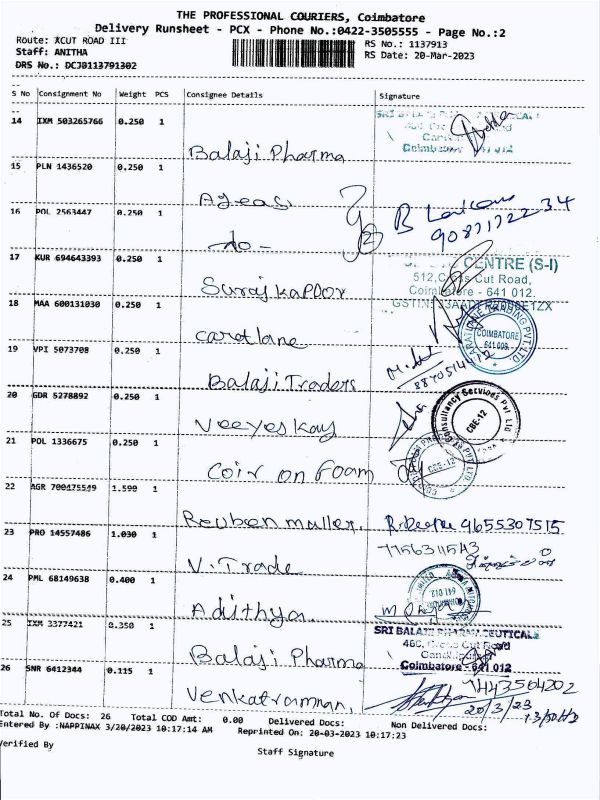 THE PROFESSIONAL COURIERS, Coimbatore
Delivery Runsheet - PCX - Phone No.:0422-3505555 - Page No.:2
Route: XCUT ROAD III
RS No.: 1137913
Staff: ANITHA
RS Date: 20-Mar-2023
DRS No.: DCJB113791302
S No Consignment No Weight PCS Consignee Details Signature
14 IXM 503265766 0.250 1
Coimbatore 641 012
Balaji Pharma
15 PLN 1436520 0.250 1
Ageas
16 POL 2563447 0.250 1
9087172234
-do-
2
17 KUR 694643393 0.250 1
CENTRE (S-I)
512, Cross Cut Road,
Coimbatore - 641 012.
Suraj kapoor
18 MAA 600131030 0.250 1
COIMBATORE
641 009.
caratlane
19 VPI 5073708 0.250 1
8870514412
Balaji Traders
20 GDR 5278892 0.250 1
Consultancy Services Pvt Ltd
CBE-12
Veeyes kay
21 POL 1336675 0.250 1
CBE-12
Coir on Foam
22 AGR 700475549 1.590 1
Reuben muller. 9655307515
23 PRO 14557486 1.030 1
V. Trade
24 PML 68149638 0.400 1
Adithya
25 IXM 3377421 0.350 1
SRI BALAJI PHARMACEUTICALS
46C, Cross Cut Road
Coimbatore - 641 012
Balaji Pharma
26 SNR 6412344 0.115 1
7443504202
Venkatraman,
20/3/23
Total No. Of Docs: 26 Total COD Amt: 0.00 Delivered Docs: Non Delivered Docs:
Entered By :NAPPINAX 3/20/2023 10:17:14 AM Reprinted On: 20-03-2023 10:17:23
Verified By
Staff Signature